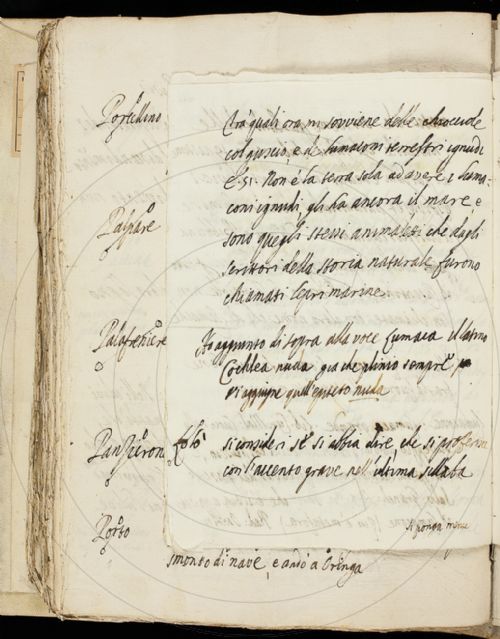 Porcellino
Tra' quali ora mi sovviene delle chiocciole
col guscio, e de lumaconi terrestri ignudi
E. si. Non é la terra sola ad avere i luma-
coni ignudi, gli ha ancora il mare e
Paspare
sono quegli stessi animaletti che dagli
scrittori della storia naturale furono
chiamati lepri marine
Palafreniere
Ho aggiunto di sopra alla voce Lumaca il latino
Cochlea nuda, gia che plinio sempre
vi aggiugne quell'epiteto nuda
si consideri se si abbia a dire, che si profferisce
con l'accento grave nell'ultima sillaba
Porto
si ponga
smonto di nave, e andò a Oringa